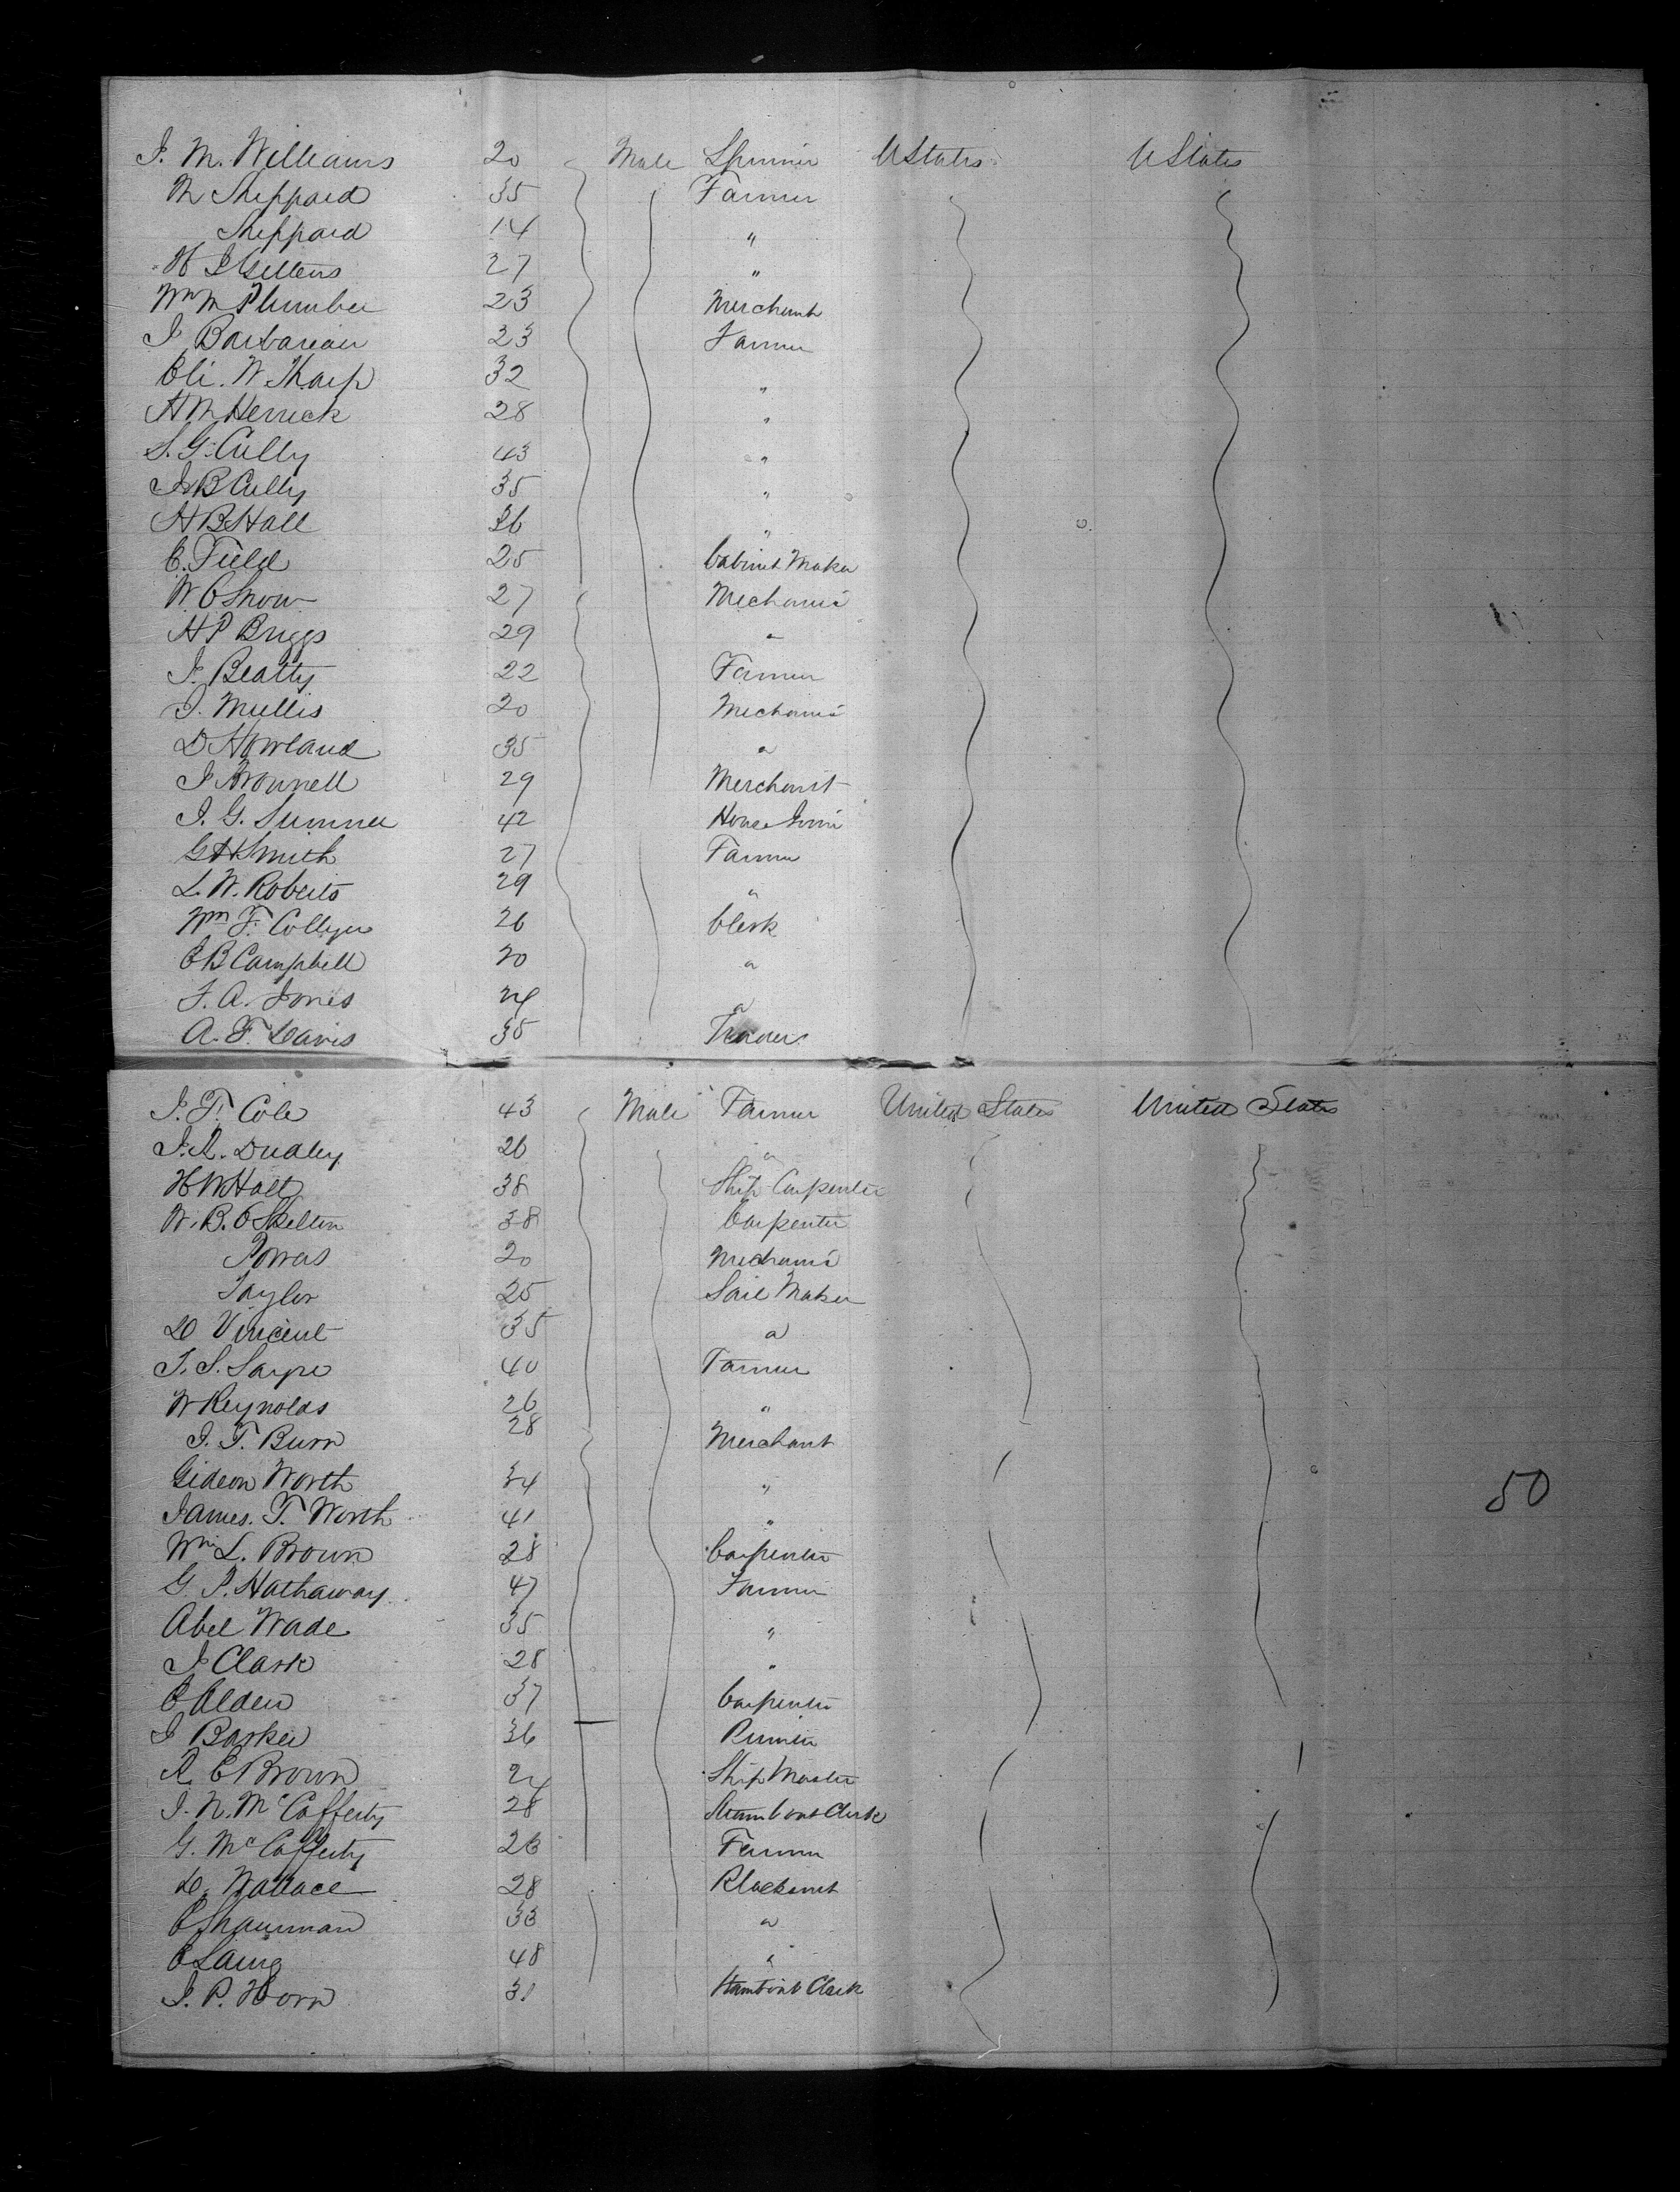 J. M. Williams 20 Male Spinner UStates UStates
M Sheppard 35 Farmer
Sheppard 14 "
H J Gettens 27 "
Wm M Plumber 23 Merchant
J Barbarian 23 Farmer
Eli. W. Tharp 32 "
H M Herrick 28 "
S. G. Cully 43 "
J B Cully 35 "
H B Hall 36 "
C. Field 25 Cabinet Maker
W. C Snow 27 Mechanic
H P Briggs 29 "
J. Beatty 22 Farmer
J. Mullis 20 Mechanic
D Howland 35 "
J. Brownell 29 Merchant
J. G. Sumner 42
G H Smith 27 Farmer
L. W. Roberts 29 "
Wm F. Collyer 26 Clerk
C B Campbell 20 "
F. A. Jones 24 "
A. F. Davis 35 Trader
J. T. Cole 43 Male Farmer United States United States
J. R. Dudley 26 "
H W Holt 38 Ship Carpenter
W. B. C Skelton 38 Carpenter
Powas 20 Mechanic
Taylor 25 Sail Maker
D Vincent 35 "
T. S. Sayre 40 Farmer
W Reynolds 26 "
J. T. Burn 28 Merchant
Gideon Worth 34 "
James. T. Worth 41 "
Wm L. Brown 28 Carpenter
G. P. Hathaway 47 Farmer
Abel Wade 35 "
J Clark 28 "
C Alden 37 Carpenter
J Barker 36
R. C Brown 24 Ship Master
J. N. McCafferty 28 Steamboat Clerk
G. McCafferty 26 Farmer
D. Wallace 28 Blacksmit
C Shaurman 33 "
C Laing 48 "
J. P. Horn 31 Steamboat Clerk
50